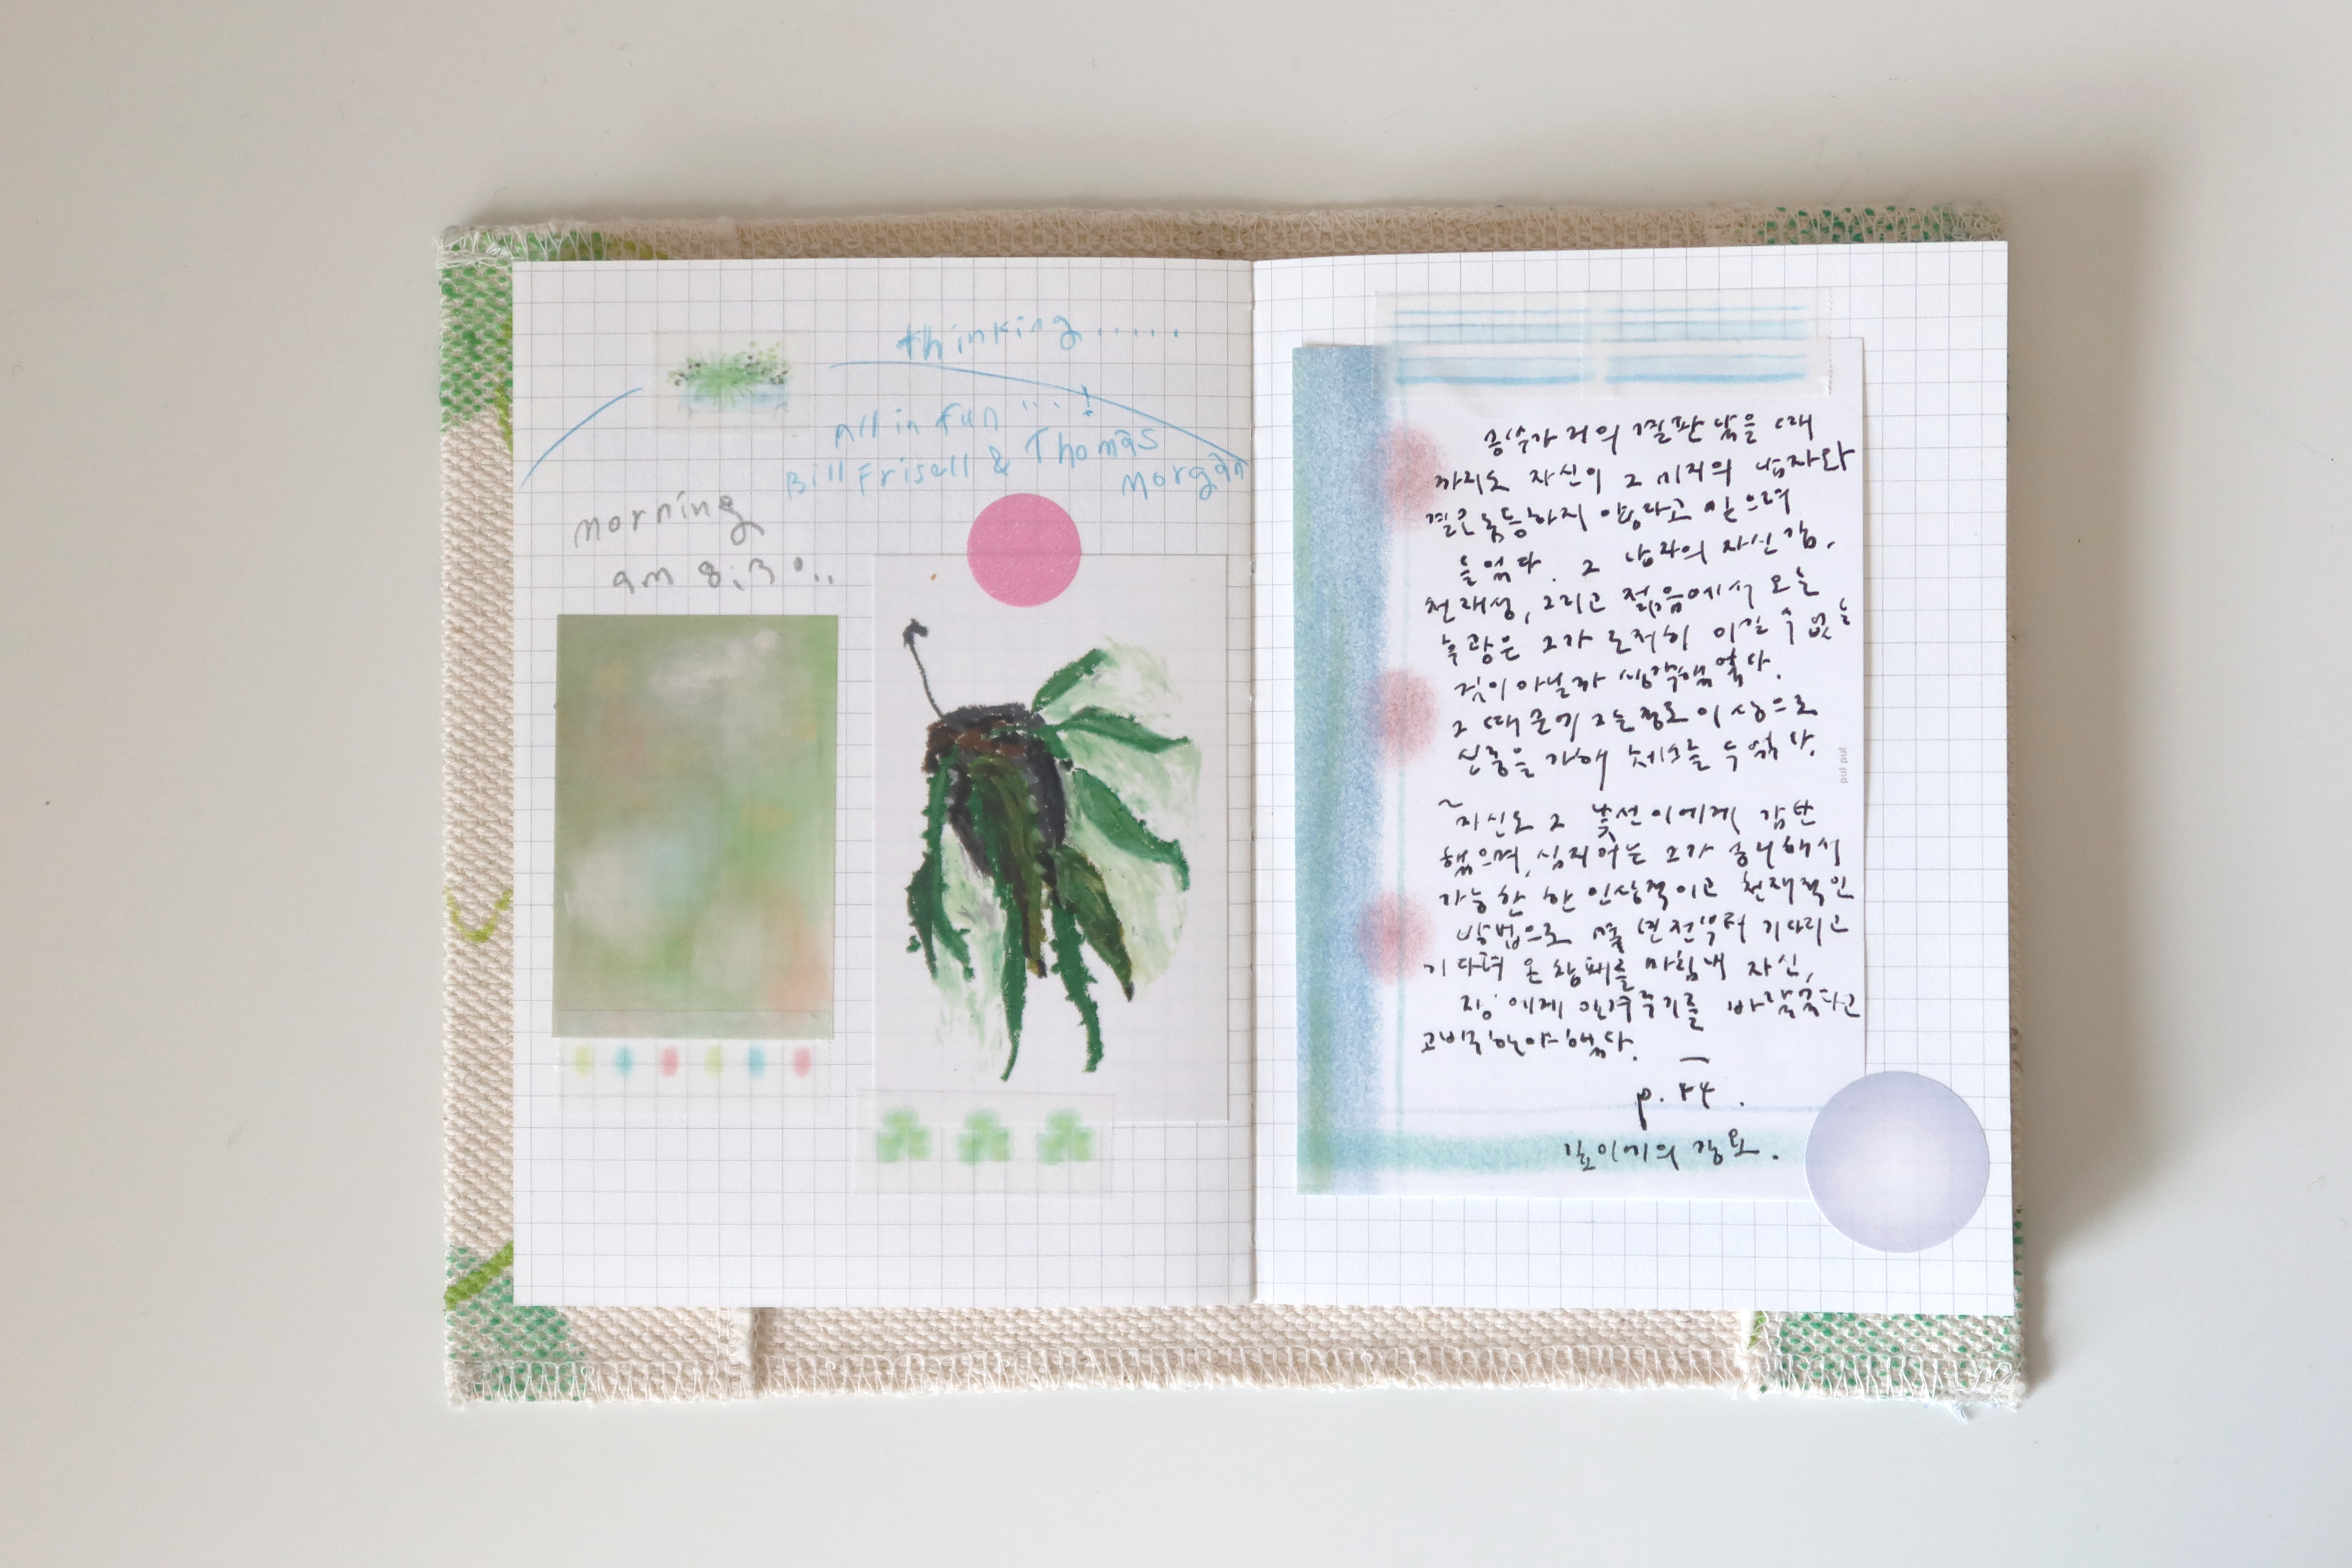 thinking.....
All in fun ...!
Bill Frisell & Thomas
Morgan
morning
am 8:30..
승부가 거의 결판 났을 때
까지도 자신이 그 미지의 남자와
결코 동등하지 않다고 믿으며
두었다. 그 남자의 자신감,
천재성, 그리고 젊음에서 오는
후광은 그가 도저히 이길 수 없는
것이 아닐까 생각했었다.
그 때문에 그는 정도 이상으로
신중을 가해 체스를 두었다.
~자신도 그 낯선 이에게 감탄
했으며, 심지어는 그가 승리해서
가능한 한 인상적이고 천재적인
방법으로 몇 년 전부터 기다리고
기다려 온 참패를 마침내 자신,
장에게 안겨주기를 바랐었다고
고백해야 했다.
p. 54.
깊이에의 강요.
pul pul